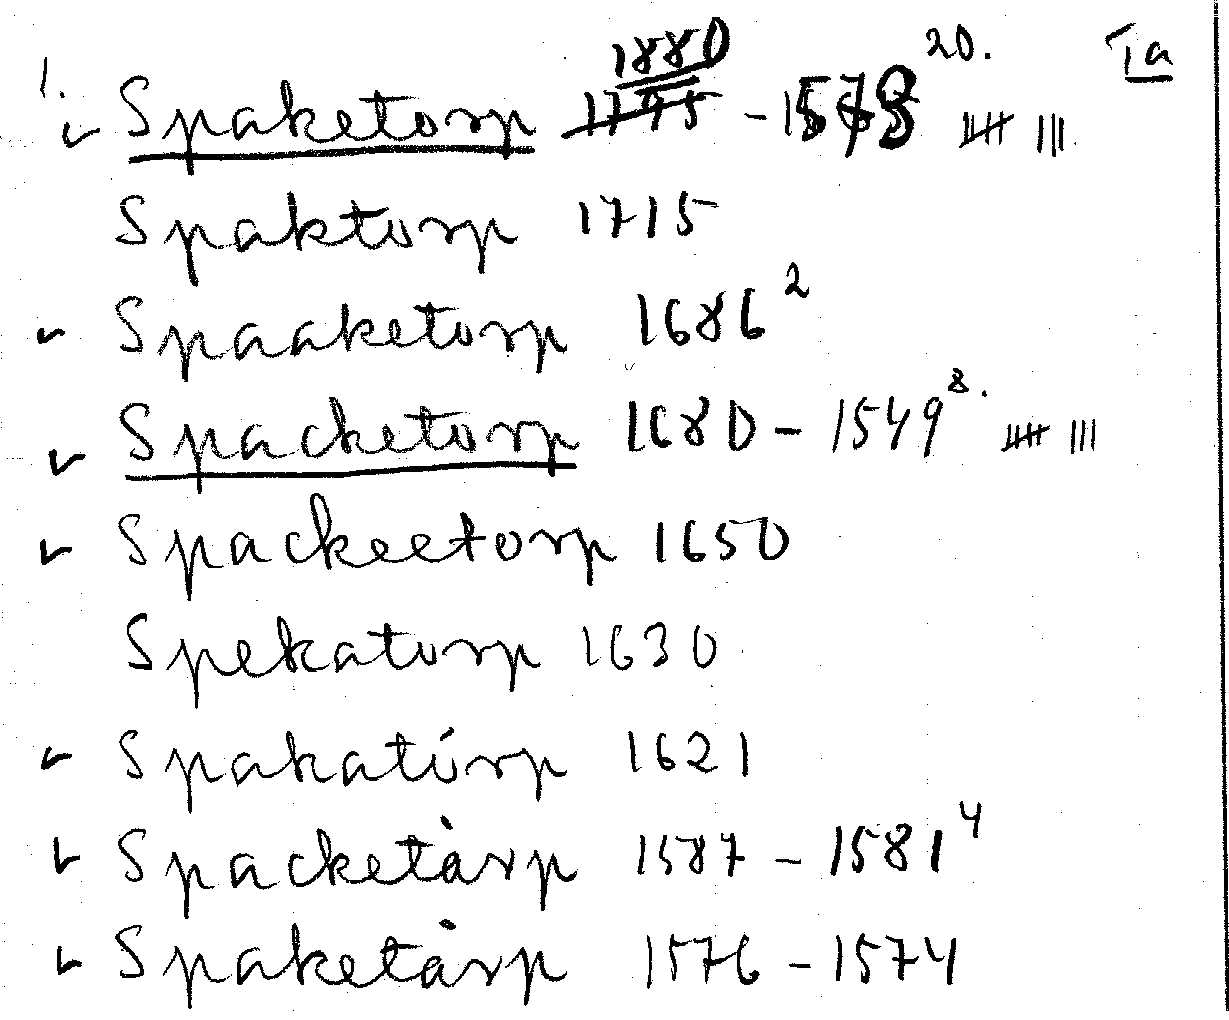 1. Spaketorp 1880 1795 - 1578 20. Ta
Spaktorp 1715
Spaaketorp 1686 2
Spacketorp 1680 - 1549 8.
Spackeetorp 1650
Spekatorp 1630
Spakatórp 1621
Spacketårp 1587 - 1581 4
Spaketårp 1576 - 1574